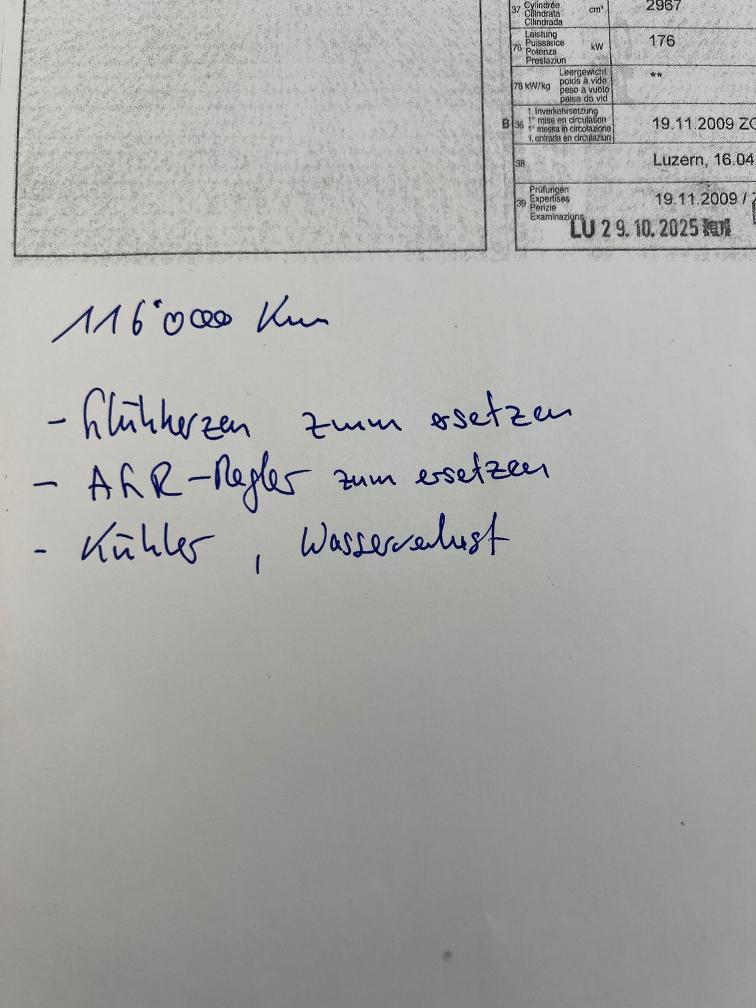 37 Cylindrée cm³ 2967
Cilindrata
Cilindrada
76 Leistung kW 176
Puissance
Potenza
Prestaziun
78 kW/kg Leergewicht **
poids à vide
peso a vuoto
paisa da vid
B 36 1. Inverkehrsetzung 19.11.2009 ZG
1re mise en circulation
1a messa in circolazione
1. entrada en circulaziun
38 Luzern, 16.04
39 Prüfungen 19.11.2009 /
Expertises
Perizie
Examinaziuns
LU 29.10.2025
116'000 Km
- Glühkerzen zum ersetzen
- AGR-Regler zum ersetzen
- Kühler, Wasserverlust